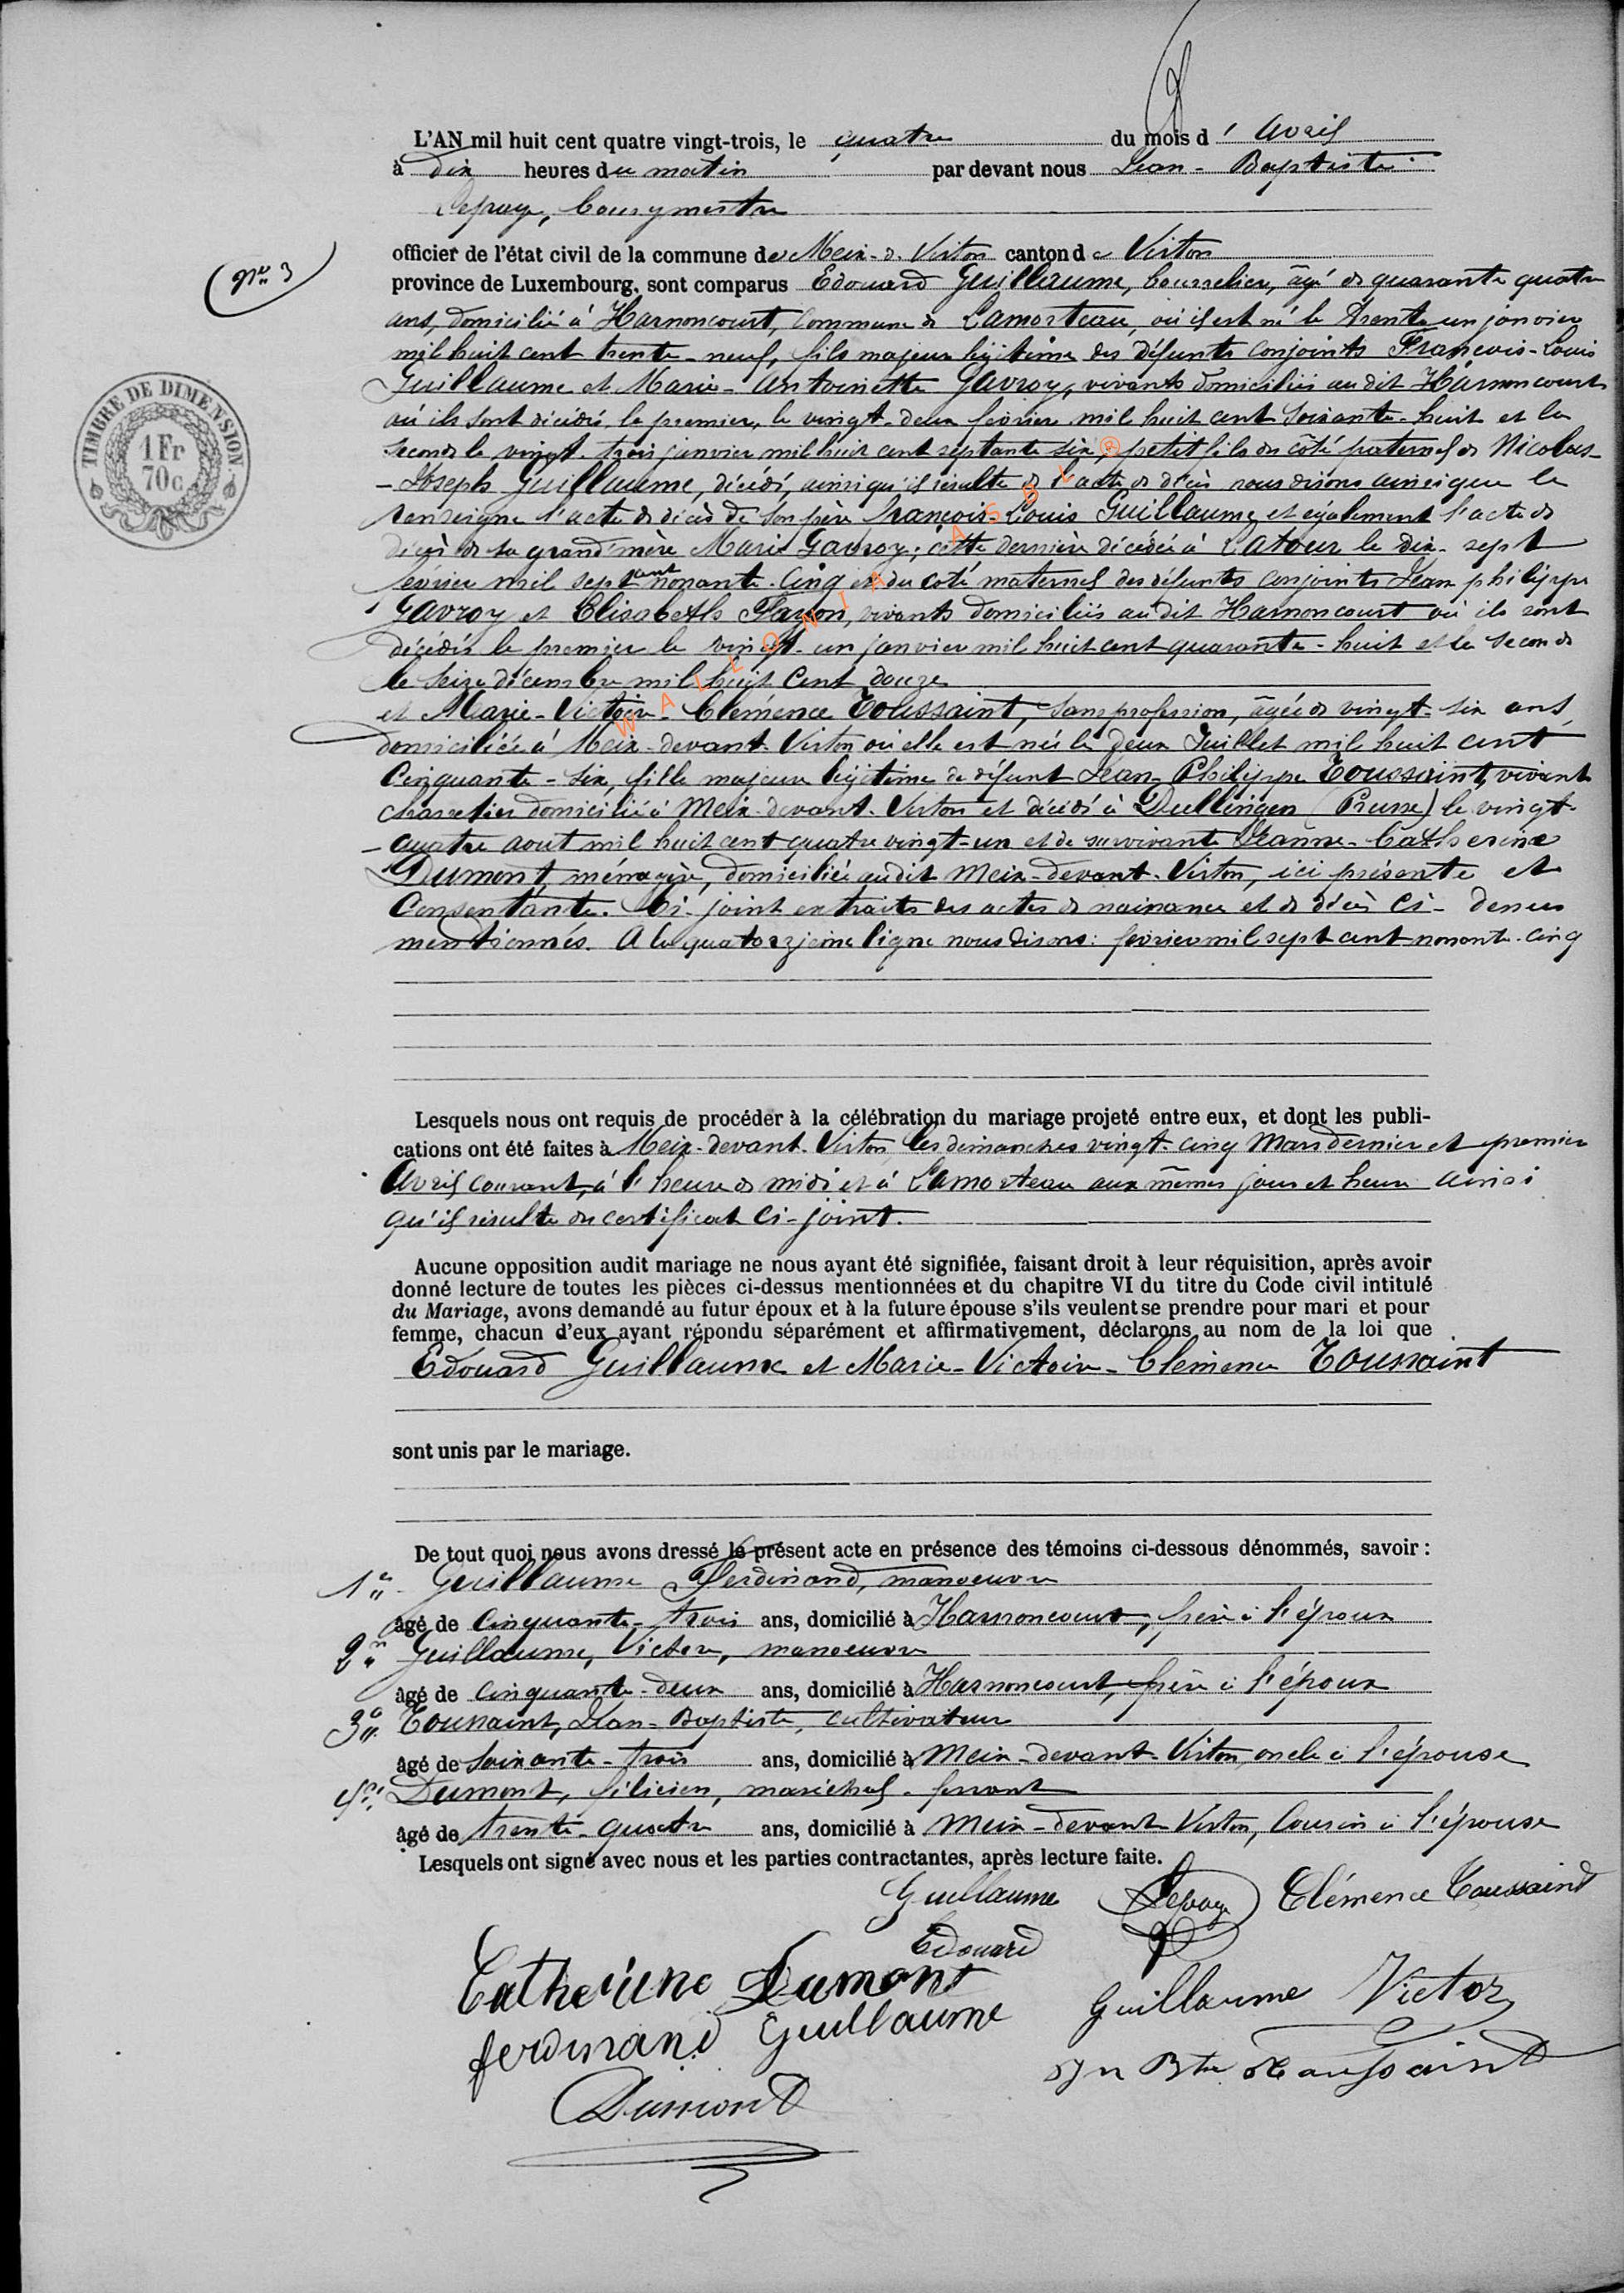 L'AN mil huit cent quatre vingt-trois, le quatre du mois d'avril
à dix heures du matin par devant nous Jean-Baptiste
Lepage, bourgmestre
officier de l'état civil de la commune de Meix-d.-Virton canton de Virton
N° 3
province de Luxembourg, sont comparus Edouard Guillaume, bourrelier, âgé de quarante quatre
ans, domicilié à Harnoncourt, commune de Lamorteau, où il est né le trente un janvier
mil huit cent trente-neuf, fils majeur légitime des défunts conjoints François-Louis
Guillaume et Marie-Antoinette Gavroy, vivants domiciliés au dit Harnoncourt
où ils sont décédés, le premier, le vingt-deux février mil huit cent soixante-huit et la
seconde le vingt-trois janvier mil huit cent septante six, petit fils du côté paternel de Nicolas-
-Joseph Guillaume, décédé, ainsi qu'il résulte de l'acte de décès nous disons ainsi que le
renseigne l'acte de décès de son père François-Louis Guillaume, et également l'acte de
décès de sa grand'mère Marie Gavroy; cette dernière décédée à Latour le dix-sept
février mil sept cent nonante-cinq et du coté maternel des défunts conjoints Jean philippe
Gavroy et Elisabeth, vivants domiciliés au dit Harnoncourt où ils sont
décédés le premier le vingt-un janvier mil huit cent quarante-huit et la seconde
le seize décembre mil huit cent douze
et Marie-Victoire-Clémence Toussaint, sans profession, âgée de vingt-six ans,
domiciliée à Meix-devant-Virton où elle est née le deux Juillet mil huit cent
cinquante-six, fille majeure légitime de défunt Jean-Philippe Toussaint, vivant
charretier domicilié à Meix-devant-Virton et décédé à Dullingen (Prusse) le vingt-
-quatre aout mil huit cent quatre vingt-un et de survivante Jeanne-Catherine
Dumont, ménagère, domiciliée au dit Meix-devant-Virton, ici présente et
consentante. Ci-joint extraits des actes de naissance et de décès ci-dessus
mentionnés. A la quatorzième ligne nous disons: février mil sept cent nonante-cinq
TIMBRE DE DIMENSION
1 Fr
70 c.
WALLONIA ASBL ®
Lesquels nous ont requis de procéder à la célébration du mariage projeté entre eux, et dont les publi-
cations ont été faites à Meix-devant-Virton, les dimanches vingt-cinq Mars dernier et premier
Avril courant, à l'heure de midi et à Lamorteau aux mêmes jour et heure ainsi
qu'il résulte du certificat ci-joint.
Aucune opposition audit mariage ne nous ayant été signifiée, faisant droit à leur réquisition, après avoir
donné lecture de toutes les pièces ci-dessus mentionnées et du chapitre VI du titre du Code civil intitulé
du Mariage, avons demandé au futur époux et à la future épouse s'ils veulent se prendre pour mari et pour
femme, chacun d'eux ayant répondu séparément et affirmativement, déclarons au nom de la loi que
Edouard Guillaume et Marie-Victoire-Clémence Toussaint
sont unis par le mariage.
De tout quoi nous avons dressé le présent acte en présence des témoins ci-dessous dénommés, savoir :
1° Guillaume Ferdinand, manoeuvre
âgé de cinquante-trois ans, domicilié à Harnoncourt, frère à l'époux
2° Guillaume, Victor, manoeuvre
âgé de cinquante-deux ans, domicilié à Harnoncourt, frère à l'époux
3° Toussaint, Jean-Baptiste, cultivateur
âgé de soixante-trois ans, domicilié à Meix-devant-Virton, oncle à l'épouse
4° Dumont, félicien, maréchal-ferrant
âgé de trente-quatre ans, domicilié à Meix-devant-Virton, Cousin à l'épouse
Lesquels ont signé avec nous et les parties contractantes, après lecture faite.
Guillaume Lepage Clémence Toussaint
Edouard
Catherine Dumont
Guillaume Victor
ferdinand Guillaume
Jn Bte Toussaint
Dumont